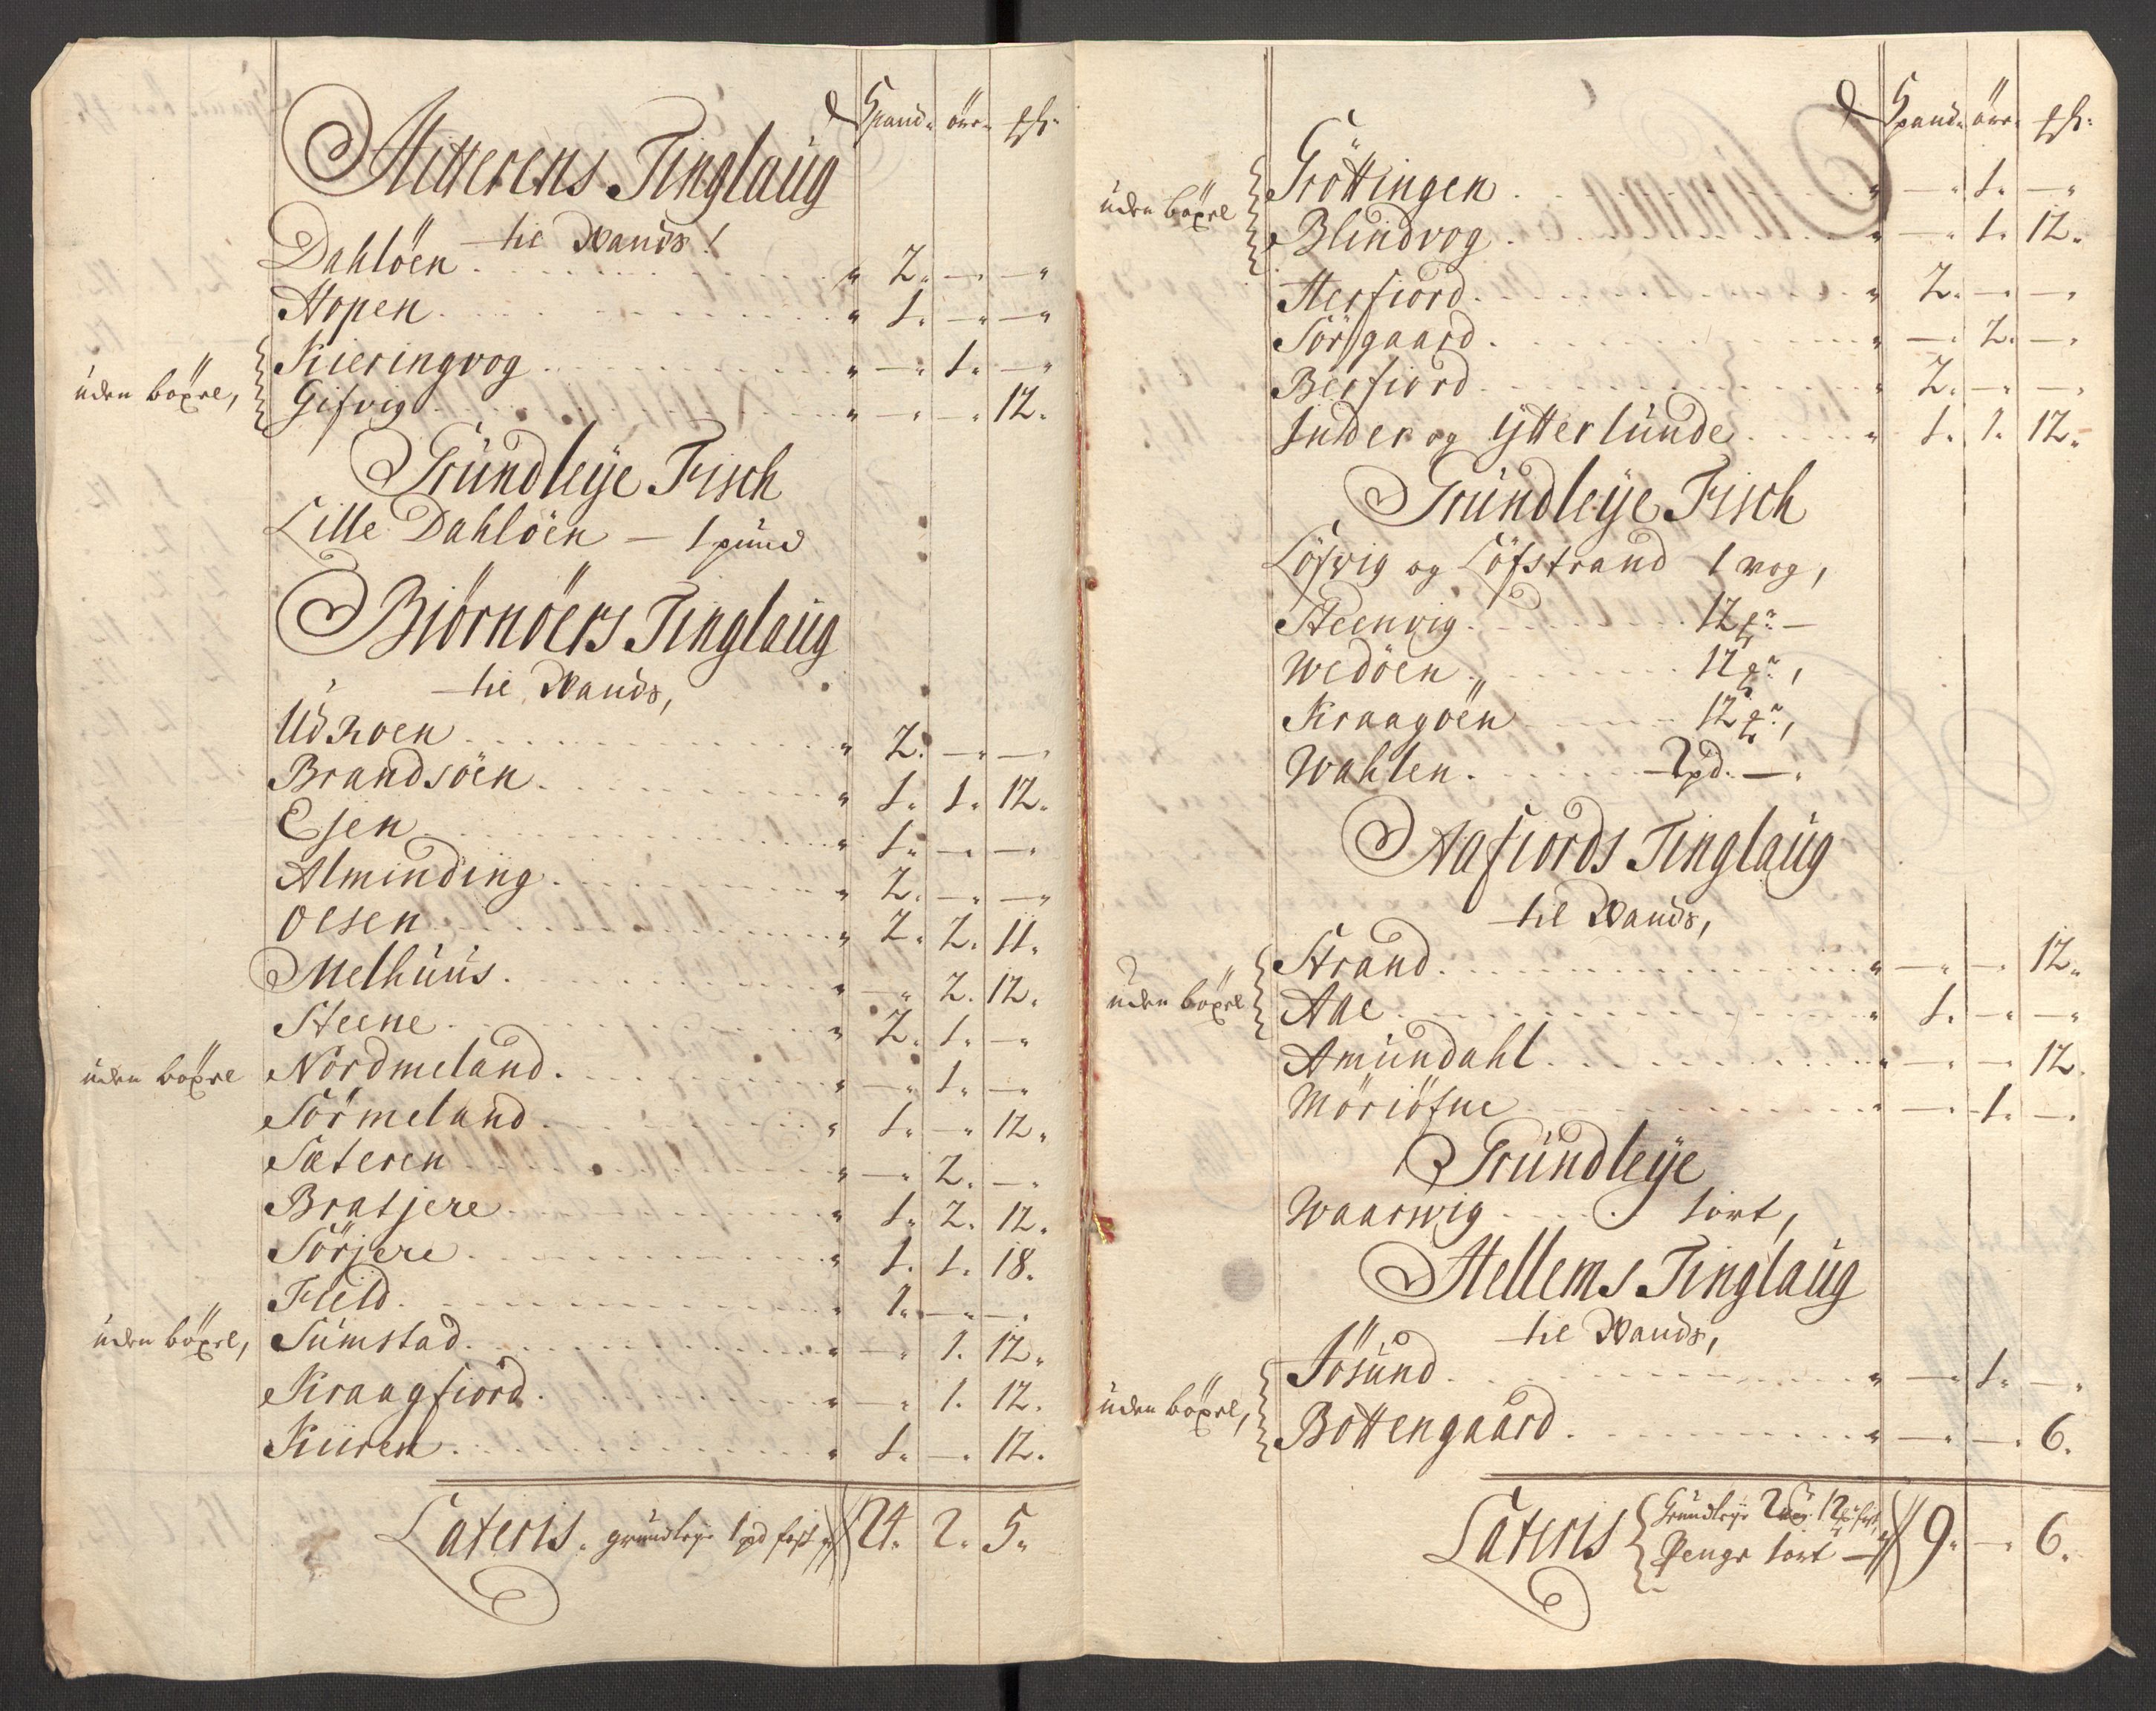 Spand. öre. ß.
Hitterens Tinglaug
til Wands!
Dahlöen . . . " 2. — —
Hopen . . . " 1. — —
Kieringvog . . . " — 1. —
uden böxel,
Gifvig . . . " — — 12.
Grundleÿe Fisch
Lille Dahlöen — 1 pund
Biörnöers Tinglaug
til Wands,
Udroen . . . " 2. — —
Brandsöen . . . " 1. 1. 12.
Esen . . . " 1. — —
Alminding . . . " 2. — —
Oesen . . . " 2. 2. 11.
Melhuus . . . " — 2. 12.
Steene . . . " 2. 1. —
uden böxel Nordmeland . . . " — 1. —
Sörmeland . . . " 1. — 12.
Sæteren . . . " — 2. —
Bratjere . . . " 1. 2. 12.
Sörjere . . . " 1. 1. 18.
Field . . . " 1. — —
uden böxel, Sumstad . . . " — 1. 12.
Kraagfiord . . . " — 1. 12.
Kiiren . . . " 1. — 12.
Lateris. grundleye 1 pd fisk 24. 2. 5.
Spand. öre. ß.
Gröttingen . . . " — 1. —
uden böxel
Blindvog . . . " — 1. 12.
Herfiord . . . " 2. — —
Sörgaard . . . " — 2. —
Berfiord . . . " 2. — —
Inder og Ÿtterlunde . . . " 1. 1. 12.
Grundleÿe Fisch
Löfvig og Löfstrand 1 vog,
Steenvig . . . 12 ꝶ. —
Wedöen . . . 12 ꝶ.,
Kraagöen . . . 12 ꝶ.,
Wahlen . . . 2 pd. —
Aafiords Tinglaug
til Wands,
Strand . . . " — — 12.
uden böxel
Aae . . . " 1. — —
Amundahl . . . " — — 12.
Möriöfne . . . " — 1. —
Grundleÿe
Waarwig . . . 1 ort,
Hellems Tinglaug
til Wands,
Jösund . . . " — 1. —
uden böxel,
Bottengaard . . . " — — 6.
Lateris { Grundleye 2 vog. 12 fisk,
Penge 1 ort — 9. — 6.